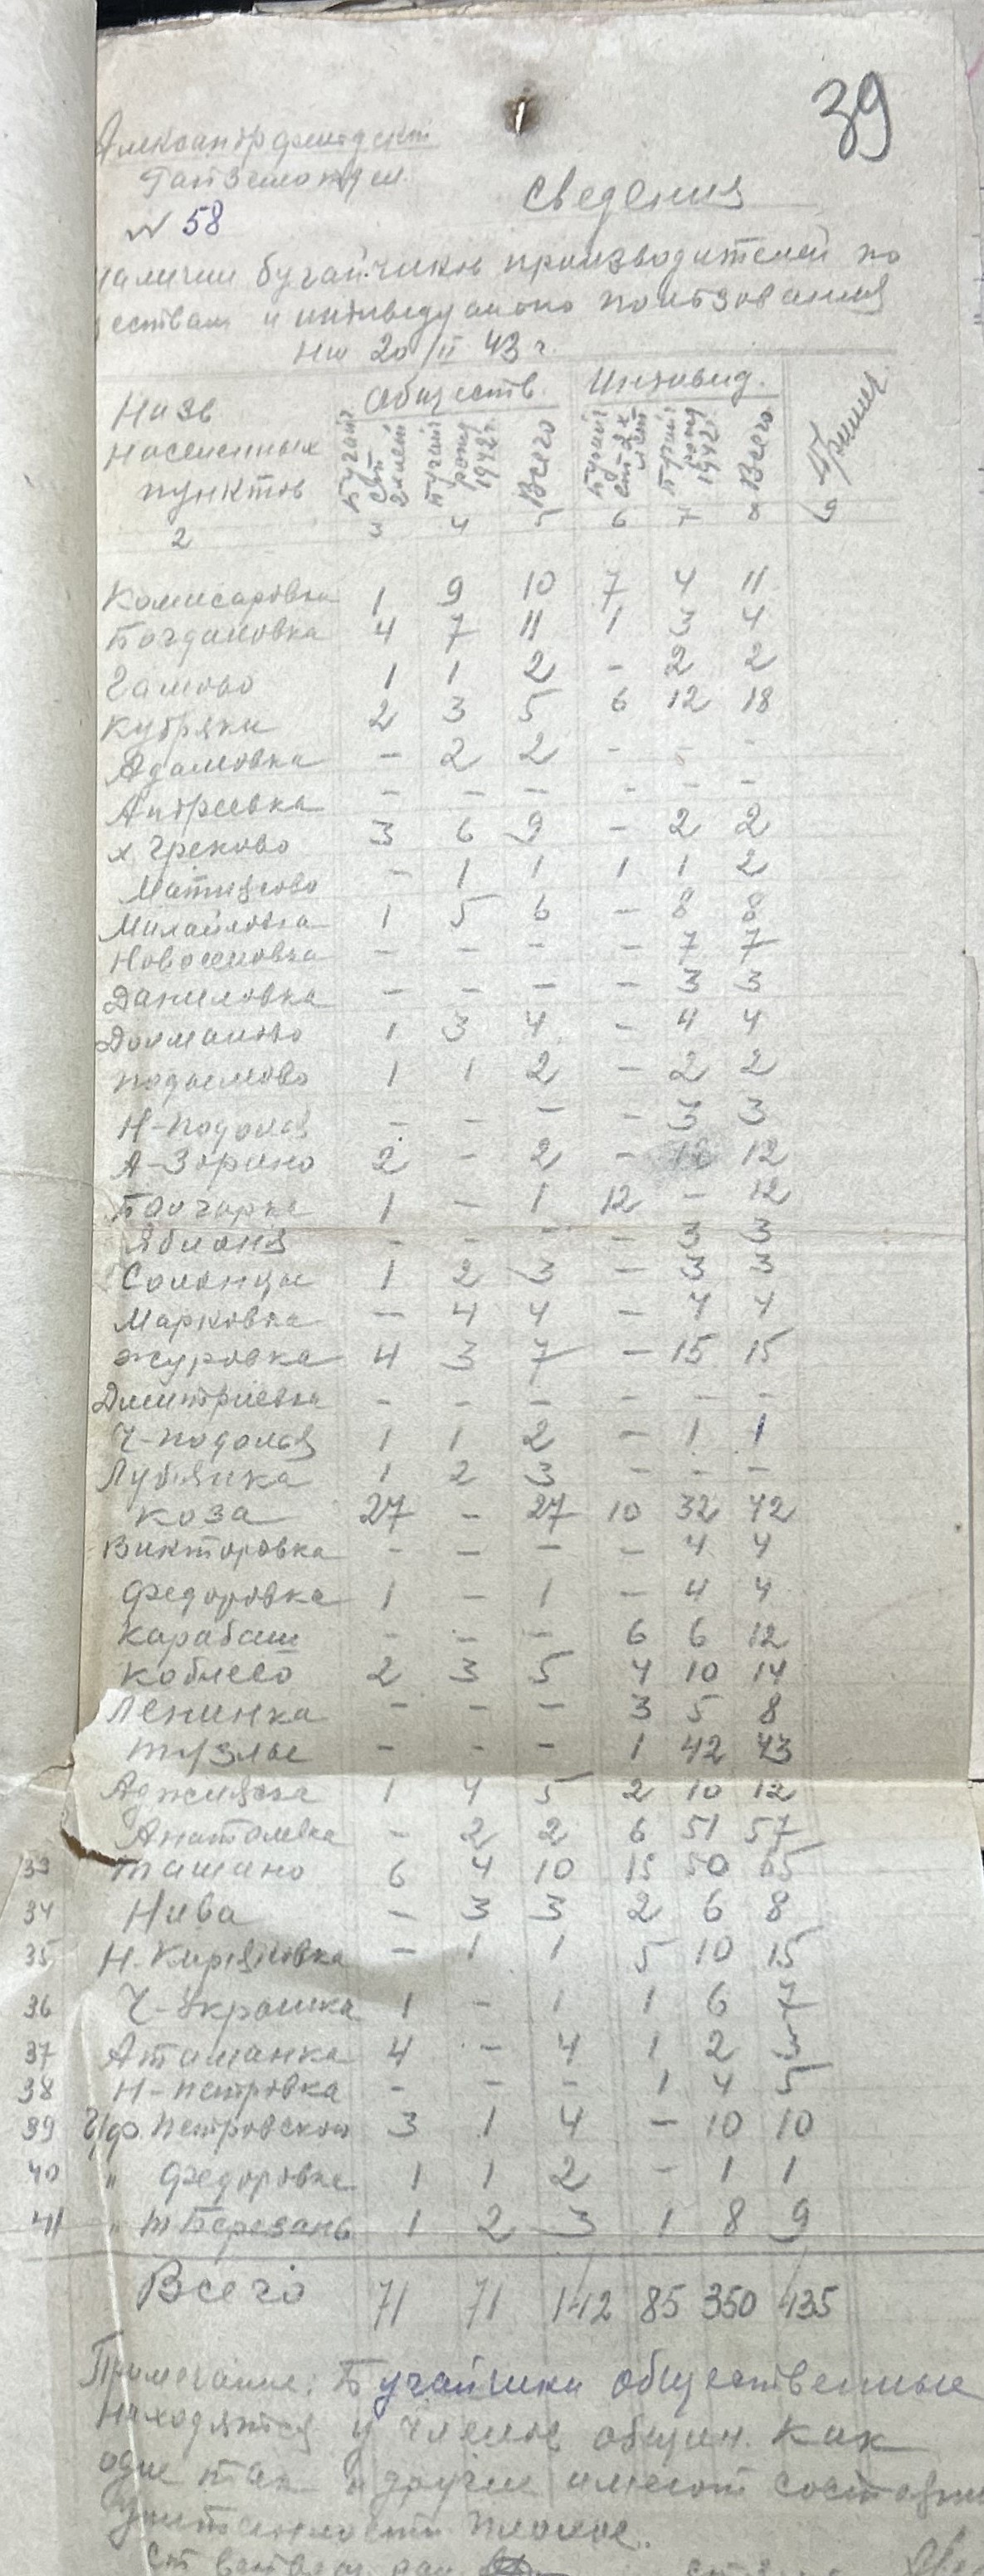 39
Александрфельдскт
Райземотдел
№ 58
Сведения
наличии бугайчиков производителей по
ествам и индивидуально пользования
на 20/II 43 г.
Назв населенных пунктов Обществ. Индивид. Примеч
Бугай свт 2х лет Бугай рожд 1942 г. Всего Бугай ст 2х лет Бугай рожд 1942 г. Всего
2 3 4 5 6 7 8 9
Комисаровка 1 9 10 7 4 11
Богдановка 4 7 11 1 3 4
Гамово 1 1 2 - 2 2
Кубряки 2 3 5 6 12 18
Адамовка - 2 2 - - -
Андреевка - - - - - -
х. Греково 3 6 9 - 2 2
Матиясово - 1 1 1 1 2
Михайловка 1 5 6 - 8 8
Новоселовка - - - - 7 7
Даниловка - - - - 3 3
Долманово 1 3 4 - 4 4
1 1 2 - 2 2
Н-Подолья - - - - 3 3
А-Зорино 2 - 2 - 12
Болгарка 1 - 1 12 - 12
Яблоня - - - - 3 3
Солонцы 1 2 3 - 3 3
Марковка - 4 4 - 4 4
Журовка 4 3 7 - 15 15
Дмитриевка - - - - - -
Ч-Подолья 1 1 2 - 1 1
Лубянка 1 2 3 - - -
Коза 27 - 27 10 32 42
Викторовка - - - - 4 4
Федоровка 1 - 1 - 4 4
Карабаш - - - 6 6 12
Коблево 2 3 5 4 10 14
Ленинка - - - 3 5 8
Тузлы - - - 1 42 43
Аджияска 1 4 5 2 10 12
Анатолевка - 2 2 6 51 57
33 Ташино 6 4 10 15 50 65
34 Нива - 3 3 2 6 8
35 Н. Киряковка - 1 1 5 10 15
36 Ч-Украинка 1 - 1 1 6 7
37 Атаманка 4 - 4 1 2 3
38 Н-Петровка - - - 1 4 5
39 Г/ф. Петровской 3 1 4 - 10 10
40 " Федоровка 1 1 2 - 1 1
41 " Т Березань 1 2 3 1 8 9
Всего 71 71 142 85 350 435
Примечание: Бугайчики общественные
находятся у членов общин. Как
одне так и другие имеют состояни
упитанности плохое.